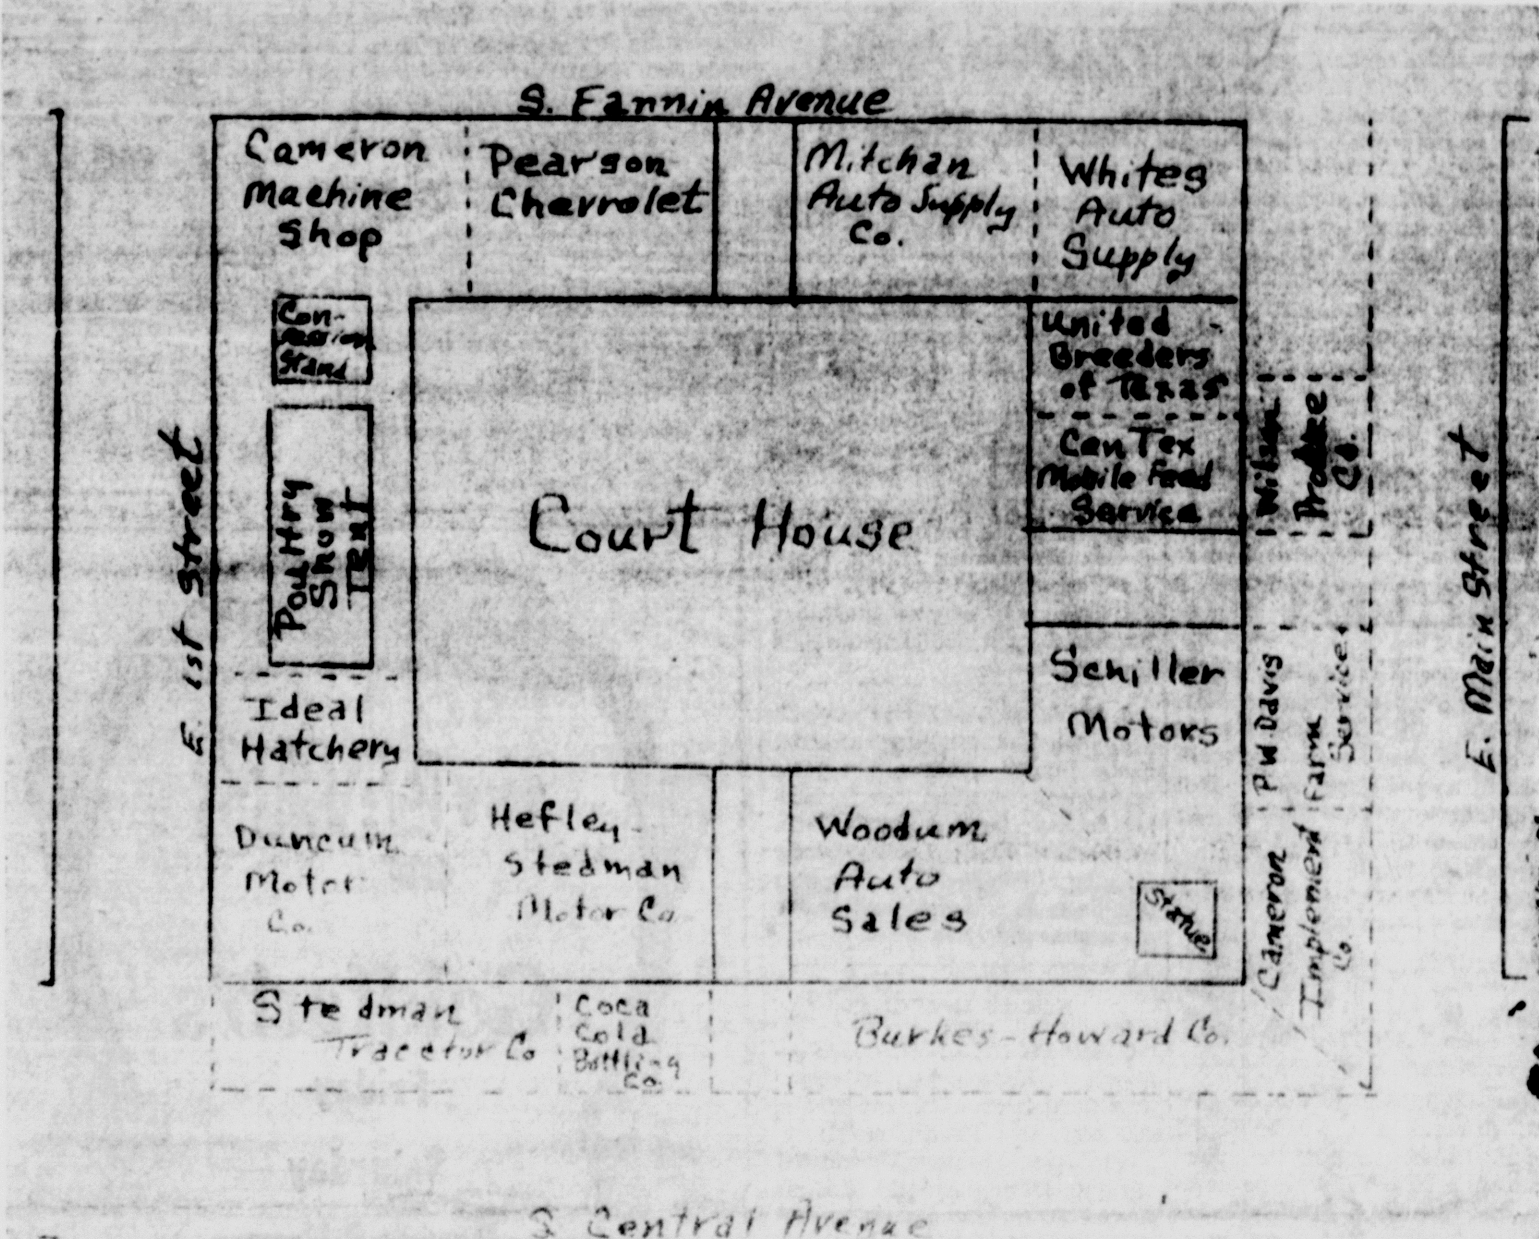 S. Fannin Avenue
Cameron
Machine
Shop
Pearson
Chevrolet
Mitchan
Auto Supply
Co.
Whites
Auto
Supply
Con-
cession
Stand
United
Breeders
of Texas
CenTex
Mobile Feed
Service
Wilson
Produce
Co.
E. 1st Street
Poultry
Show
Tent
Court House
E. Main Street
Ideal
Hatchery
Schiller
Motors
P W Davis
Farm
Service
Duncum
Motor
Co.
Hefley
Stedman
Motor Co
Woodum
Auto
Sales
Statue
Cameron
Implement
Co.
Stedman
Tractor Co
Coca
Cola
Bottling
Co.
Burkes-Howard Co.
S Central Avenue